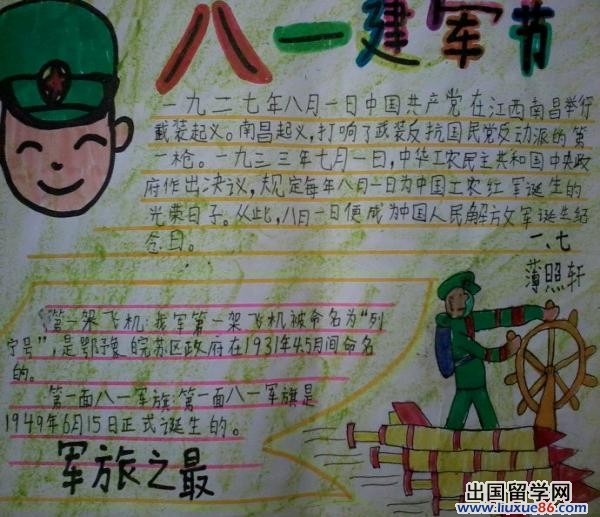 八一建军节
一九二七年八月一日中国共产党在江西南昌举行
武装起义。南昌起义,打响了武装反抗国民党反动派的第
一枪。一九三三年七月一日,中华工农民主共和国中央政
府作出决议,规定每年八月一日为中国工农红军诞生的
光荣日子。从此,八月一日便成为中国人民解放军诞生纪
念日。
一、七
薄照轩
第一架飞机:我军第一架飞机被命名为“列
宁号”,是鄂豫皖苏区政府在1931年4.5月间命名
的。
第一面八一军旗:第一面八一军旗是
1949年6月15日正式诞生的。
军旅之最
出国留学网
www.liuxue86.com